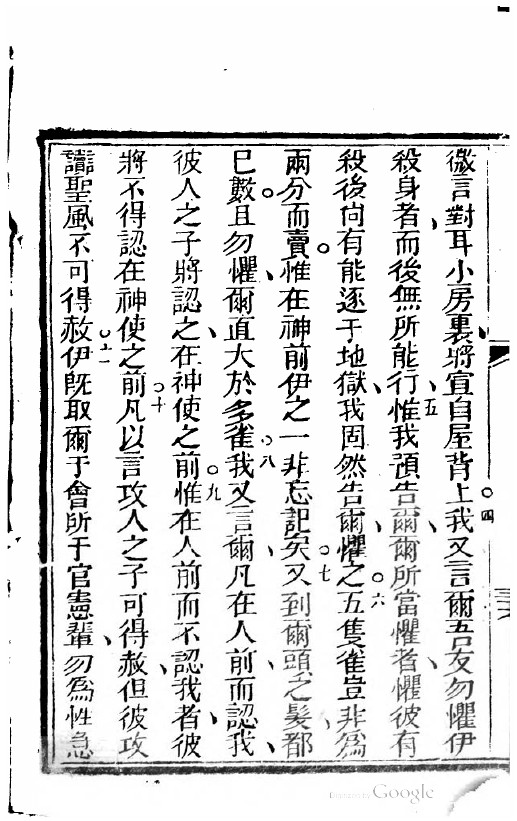 微言對耳小房裏將宣自屋背上我又言爾吾友勿懼伊
四
殺身者而後無所能行惟我預告爾爾所當懼者懼彼有
五
殺後尚有能逐于地獄我固然告爾懼之五隻雀豈非為
六
兩分而賣惟在神前伊之一非忘記矣又到爾頭之髮都
七
已數且勿懼爾直大於多雀我又言爾凡在人前而認我
八
彼人之子將認之在神使之前惟在人前而不認我者彼
九
將不得認在神使之前凡以言攻人之子可得赦但彼攻
十
讟聖風不可得赦伊旣取爾于會所于官憲輩勿為性急
十一
Digitized by Google